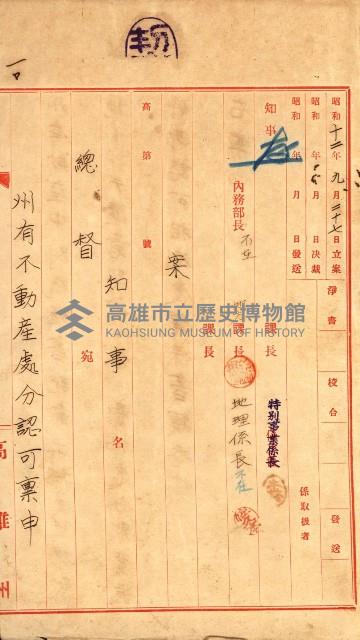 昭和十二年九月二十七日立案
昭和 年 月 日決裁
昭和 年 月 日發送
淨書
校合
發送
係取扱者
知事
內務部長 不在
課長
課長
課長
特別事業係長
地理係長 不在
高第 號
案
知事名
總督宛
州有不動產處分認可稟申
高雄州
高雄市立歷史博物館
KAOHSIUNG MUSEUM OF HISTORY